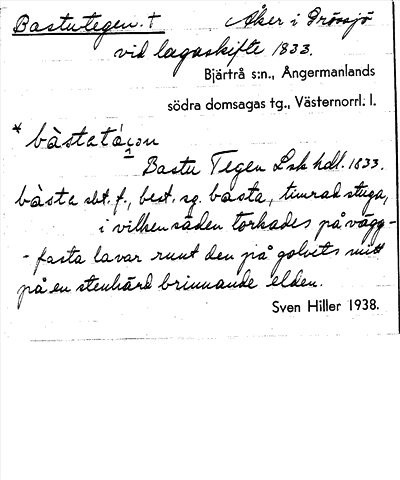 Bastutegen. † Åker i Drössjö
vid lagaskifte 1833.
Bjärtrå s:n., Ångermanlands
södra domsagas tg., Västernorrl: l.
* bàstatá
Bastu Tegen Lsk hdl. 1833.
bàsta sbt. f., best. sg. basta, timrad stuga,
i vilken säden torkades på vägg-
- fasta lavar runt den på golvets mitt
på en stenhärd brinnande elden.
Sven Hiller 1938.